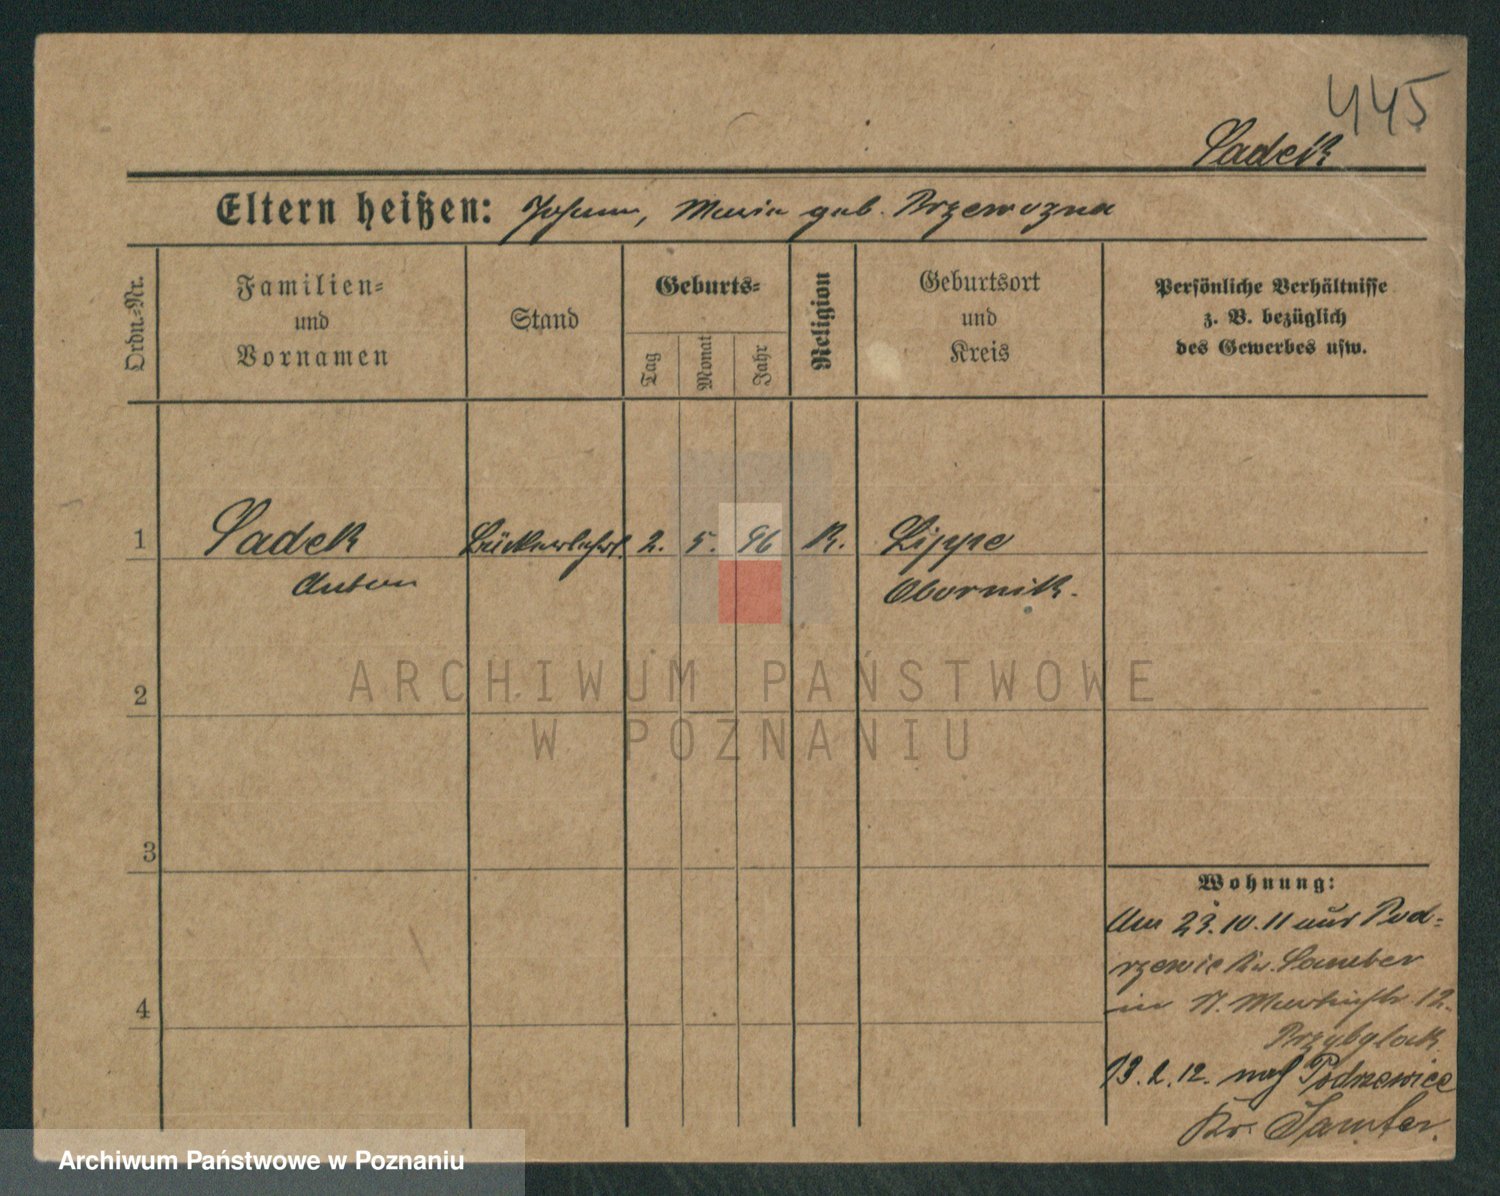 445
Sadek
Eltern heißen: Johann, Maria geb. Przewozna
Ordn.-Nr.
Familien-
und
Vornamen
Stand
Geburts-
Tag
Monat
Jahr
Religion
Geburtsort
und
Kreis
Persönliche Verhältnisse
z. B. bezüglich
des Gewerbes usw.
1 Sadek Bäckerlehrl. 2. 5. 96 K. Lippe
Anton Obornik.
2
3
4
Wohnung:
Am 23.10.11 aus Pod-
rzewie Kr. Samter
in St. Martinstr 12.
13.2.12. nach Podrzewice
Kr. Samter.
ARCHIWUM PAŃSTWOWE
W POZNANIU
Archiwum Państwowe w Poznaniu